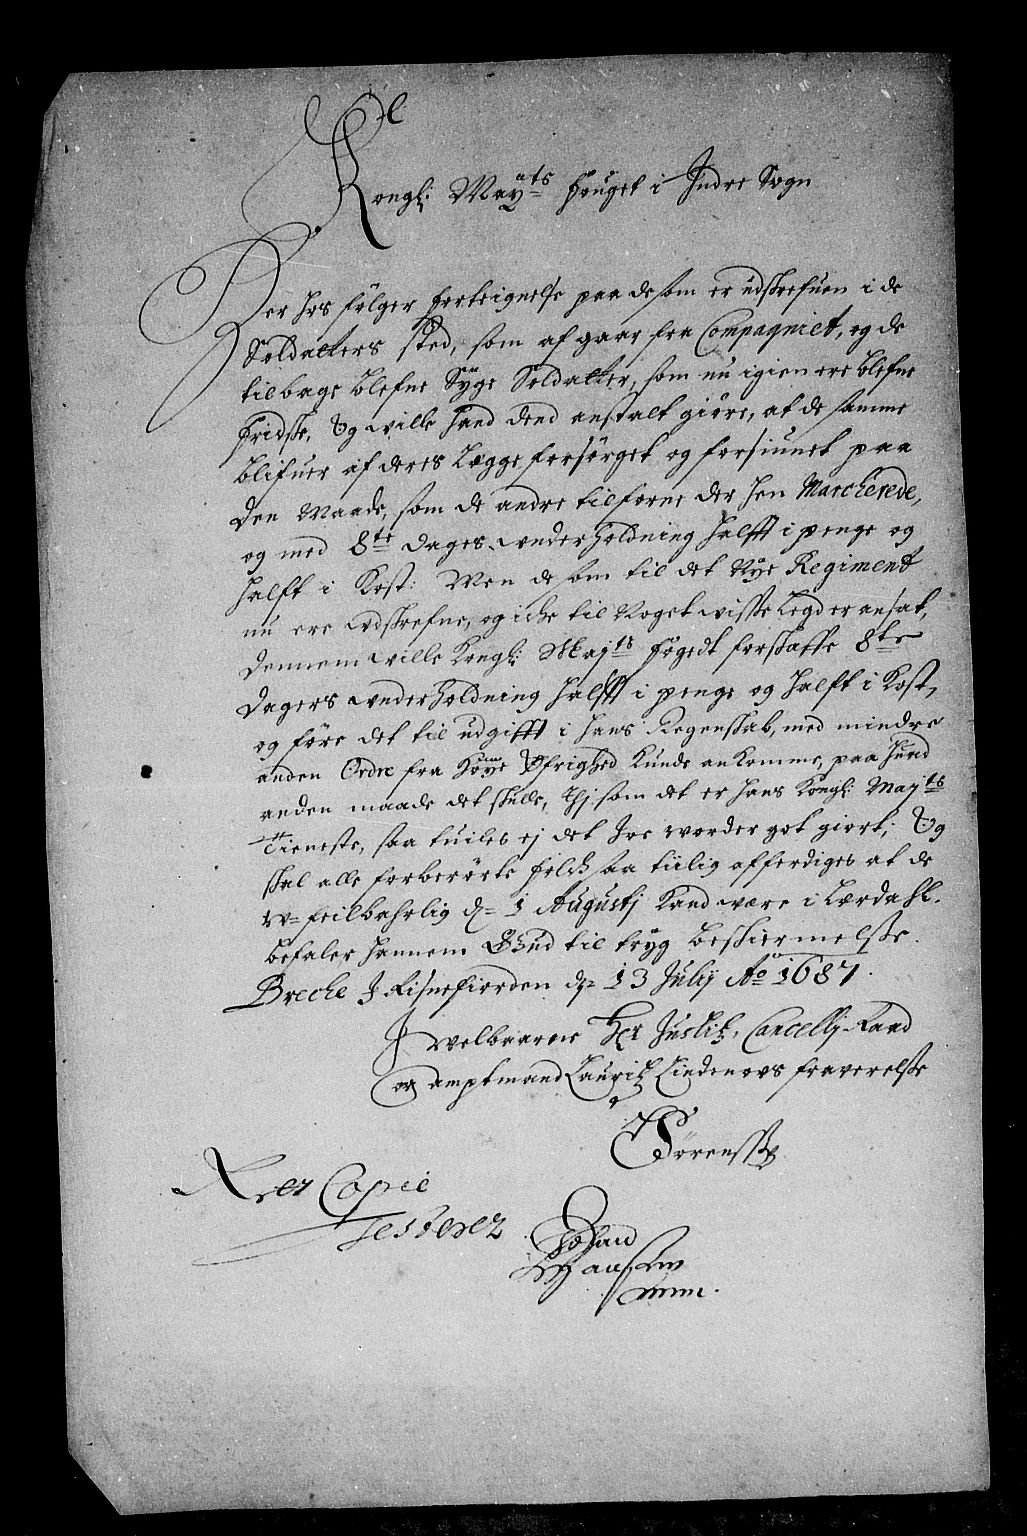 Kongl: Maÿts fouget i Indre Sogn
Her hos fölger forteignelse paa de som er udskrefuen i de
Soldatters sted, som af gaar fra Compagniet, og de
tilbage blefne Syge Soldatter, som nu igien ere blefne
fridske, Og wille hand dend anstalt giöre, at de samme
blifuer af deres Lægge forsörget og forsiunet paa
den Maade, som de andre tilforne der hen Marcherede,
og med 8te dages underholdning halfft i penge og
halft i Kost: Men de som til det Nye Regiment
nu ere udskrefne, og iche til Noget wisse Legder ansat,
dennem wille Kongl: Majts fogedt forskaffe 8te
dagers underholdning halfft i penge og halft i Kost,
og före det til udgifft i hans Regenskab, med mindre
anden Ordre fra höye Öfrighed kunde ankomme, paa hvad
anden maade det skulle, thj som det er hans Kongl: Majts
Tieneste, saa tuiles ej det jo worder got giort; Og
skal alle forberörte folch saa tiilig afferdiges at de
u-feilbahrlig d= 1 Augustj kand være i Lærdahl.
befaler hannem Gud til tryg beskiermelsse.
Breche J Risnefiorden d= 13 Julij Ao 1687.
J welbaarne Her Justitz, Cancellj-Raad
og amptmand Lauritz Lindenovs fraverelsse
Sörenssen
Ret Copie
Testerer
Johan
Hansen
mm.